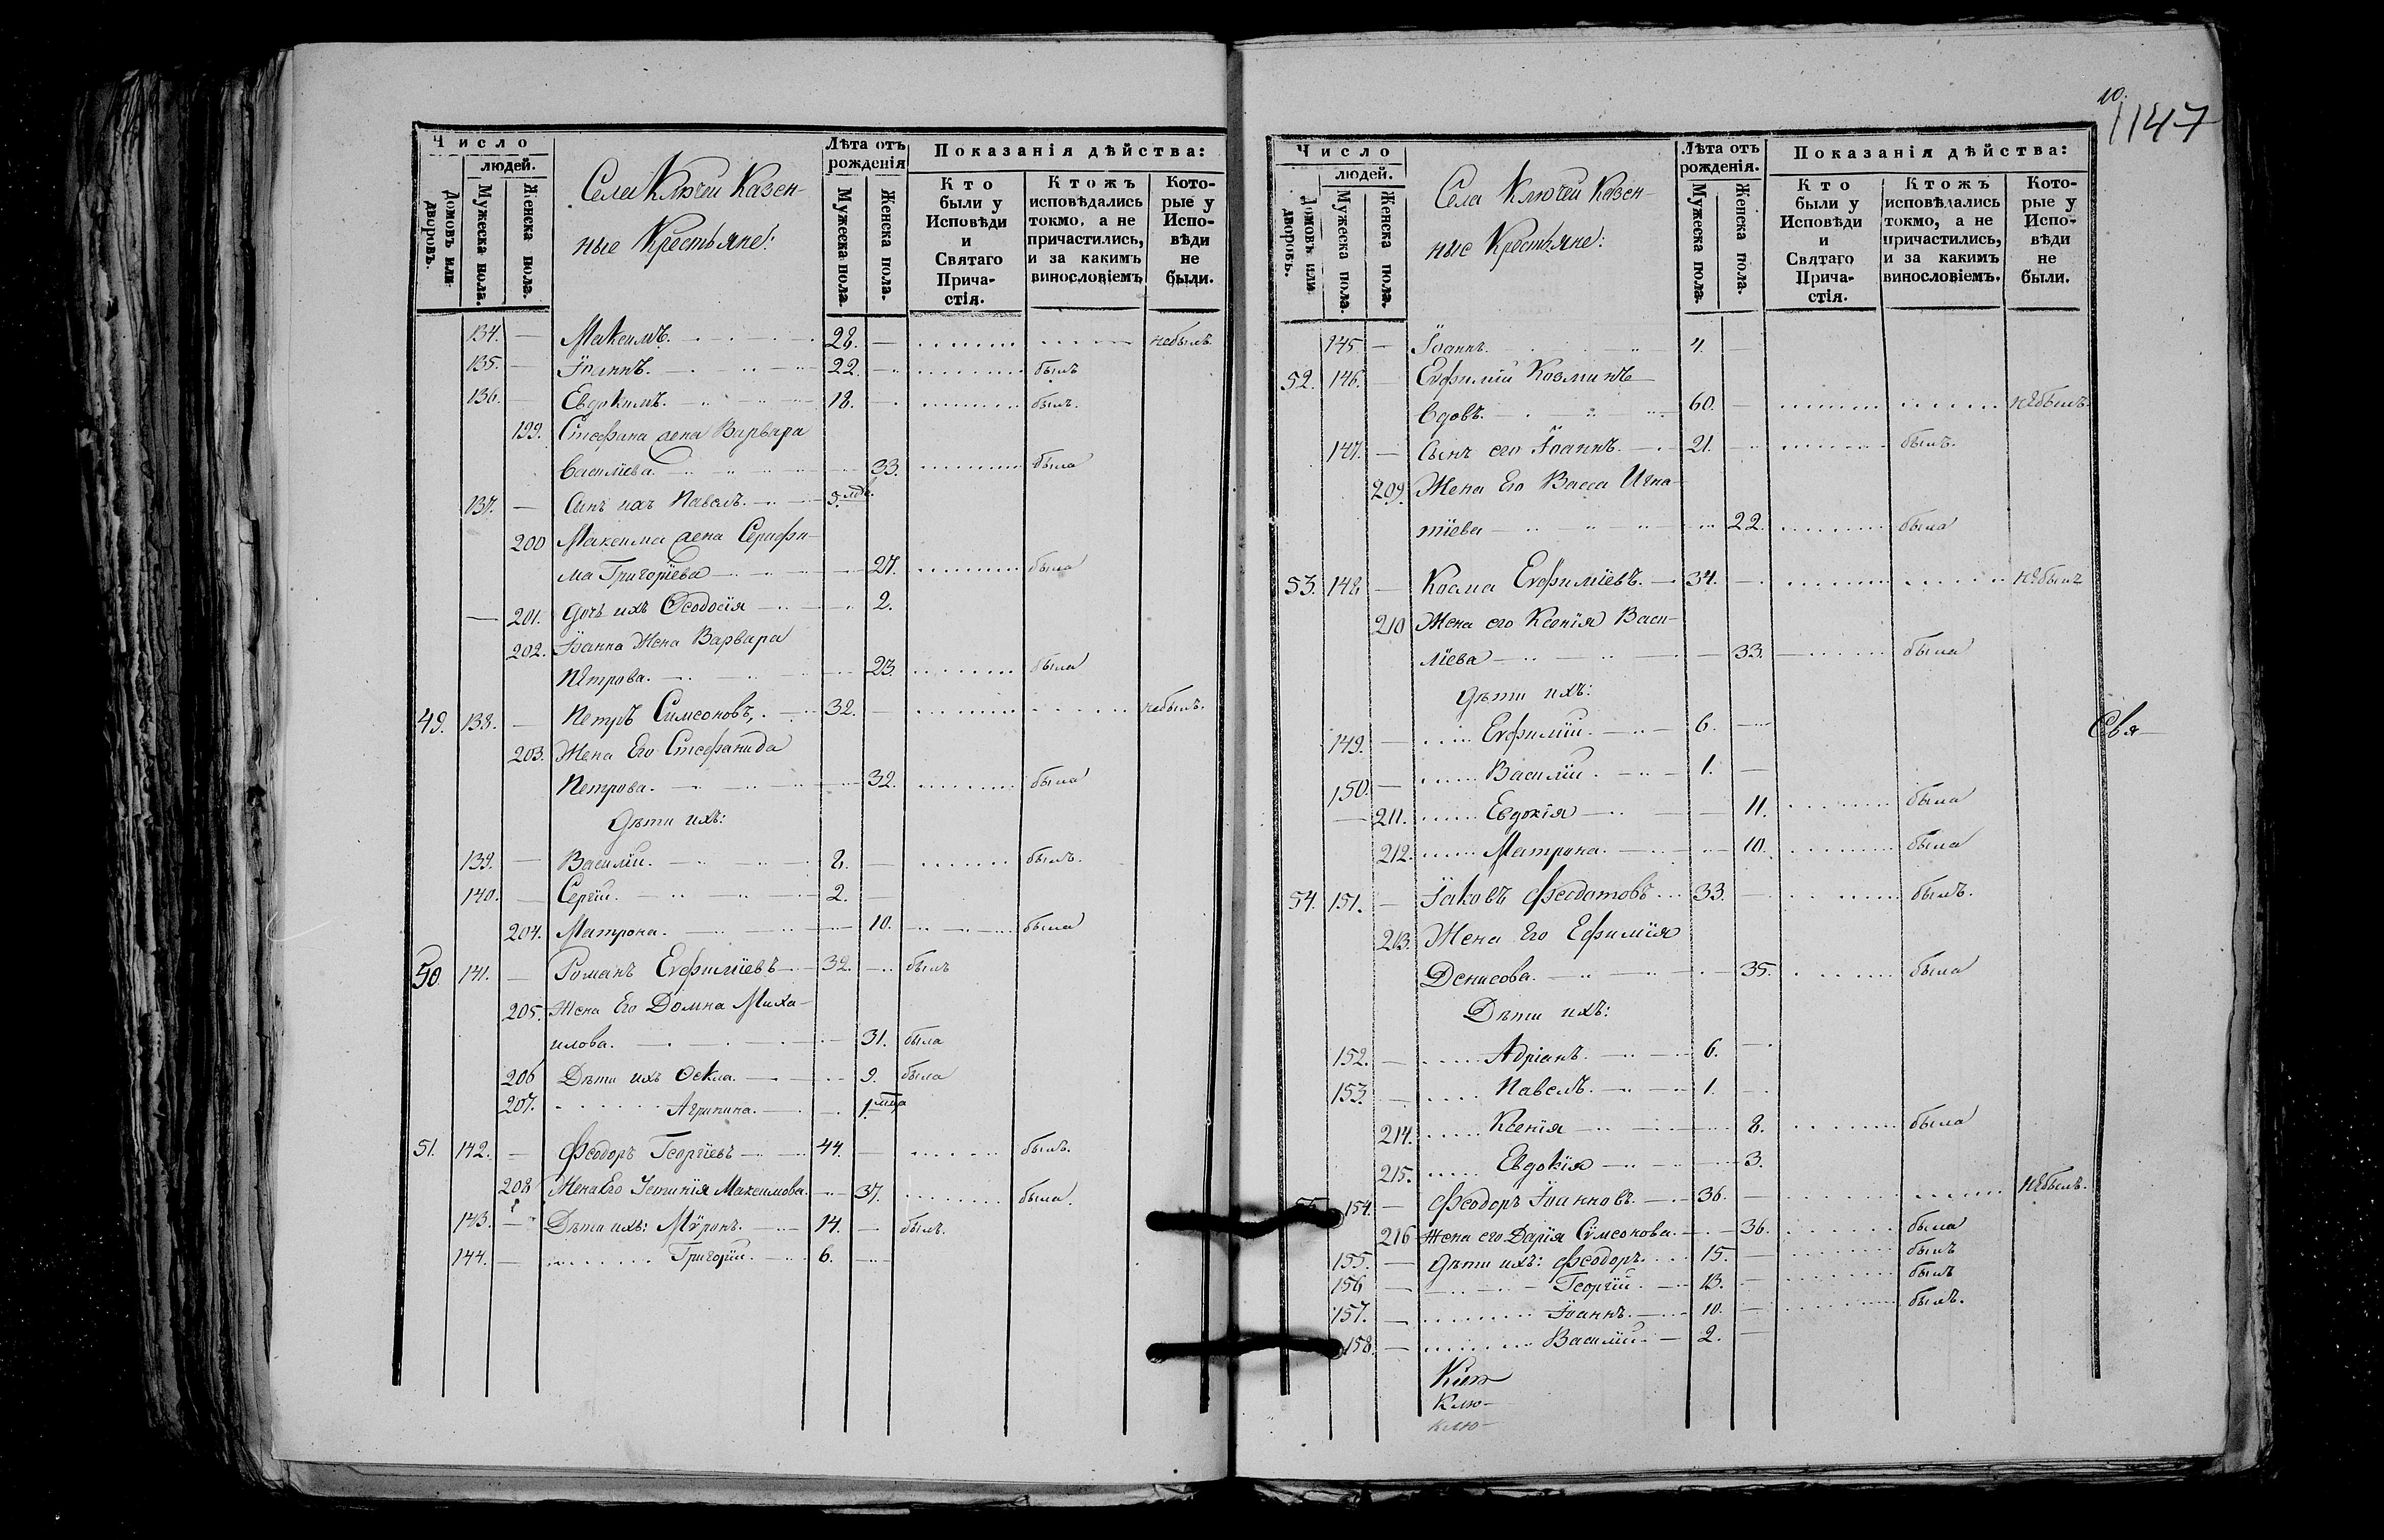 Число
людей.
Домовъ или дворовъ.
Мужеска пола.
Женска пола.
Села Ключей Казен-
ные Крестьяне:
Лѣта отъ рожденія
Мужеска пола.
Женска пола.
Показанія дѣйства:
Кто были у Исповѣди и Святаго Прича-стія.
Ктожъ исповѣдались токмо, а не причастились, и за какимъ винословіемъ
Кото-рые у Испо-вѣди не были.
134. — Максимъ. 28. — небылъ.
135. — Іоаннъ. 22. — былъ
136. — Евдокимъ. 18. — былъ.
199. Стефана жена Варвара
Васильева. 33. была
137. — Сынъ ихъ Павелъ. 5.
200 Максима жена Серафи-
ма Григоріева 27. была
— 201. Дочь ихъ Ѳеодосія 2.
202. Іоанна Жена Варвара
Петрова. 23. была
49. 138. — Петръ Симеоновъ. 32. — небылъ.
203. Жена Его Стефанида
Петрова. 32. была
Дѣти ихъ:
139. — Василій. 8. — былъ.
140. — Сергій. 2. —
204. Матрона. 10. была
50 141. — Романъ Евфиміевъ 32. былъ
205. Жена Его Домна Миха-
илова. 31. была
206 Дѣти ихъ Ѳекла. 9. была
207. Агрипина. 1. мца
51. 142. — Ѳеодоръ Георгіевъ 44. — былъ.
208 Жена Его Устинія Максимова. 37. была.
143. — Дѣти ихъ: Мѵронъ. 14. — былъ.
144. — Григорій. 6. —
10.
1147
Число
людей.
Домовъ или дворовъ.
Мужеска пола.
Женска пола.
Села Ключей Казен-
ные Крестьяне:
Лѣта отъ рожденія.
Мужеска пола.
Женска пола.
Показанія дѣйства:
Кто были у Исповѣди и Святаго Прича-стія.
Ктожъ исповѣдались токмо, а не причастились, и за какимъ винословіемъ.
Кото-рые у Испо-вѣди не были.
145. — Іоаннъ. 4. —
52. 146. — Евфимій Козминъ
вдовъ. 60. — небылъ.
147. — Сынъ его Іоаннъ. 21. былъ.
209. Жена Его Васса Игна-
тіева 22. была
53. 148 — Косма Евфиміевъ. 34. — небылъ
210 Жена его Ксенія Васи-
ліева 33. была
Дѣти ихъ:
149. — Евфимій. 6. —
Свя-
150. — Василій. 1. —
— 211. Евдокія 11. была
212. Матрона. 10. была
54. 151. — Іаковъ Ѳеодотовъ 33. — былъ.
213. Жена Его Ефимія
Денисова. 35. была
Дѣти ихъ:
152. — Адріанъ. 6. —
153. — Павелъ. 1. —
214. Ксенія 8. была
215. Евдокія 3.
154. — Ѳеодоръ Іоанновъ. 36. — небылъ.
216 Жена его Дарія Сѵмеонова. 36. была
155. — Дѣти ихъ: Ѳеодоръ. 15. — былъ
156 — Георгій. 13. — былъ
157. — Іоаннъ. 10. — былъ.
158. — Василій. 2. —
Клю-
клю-